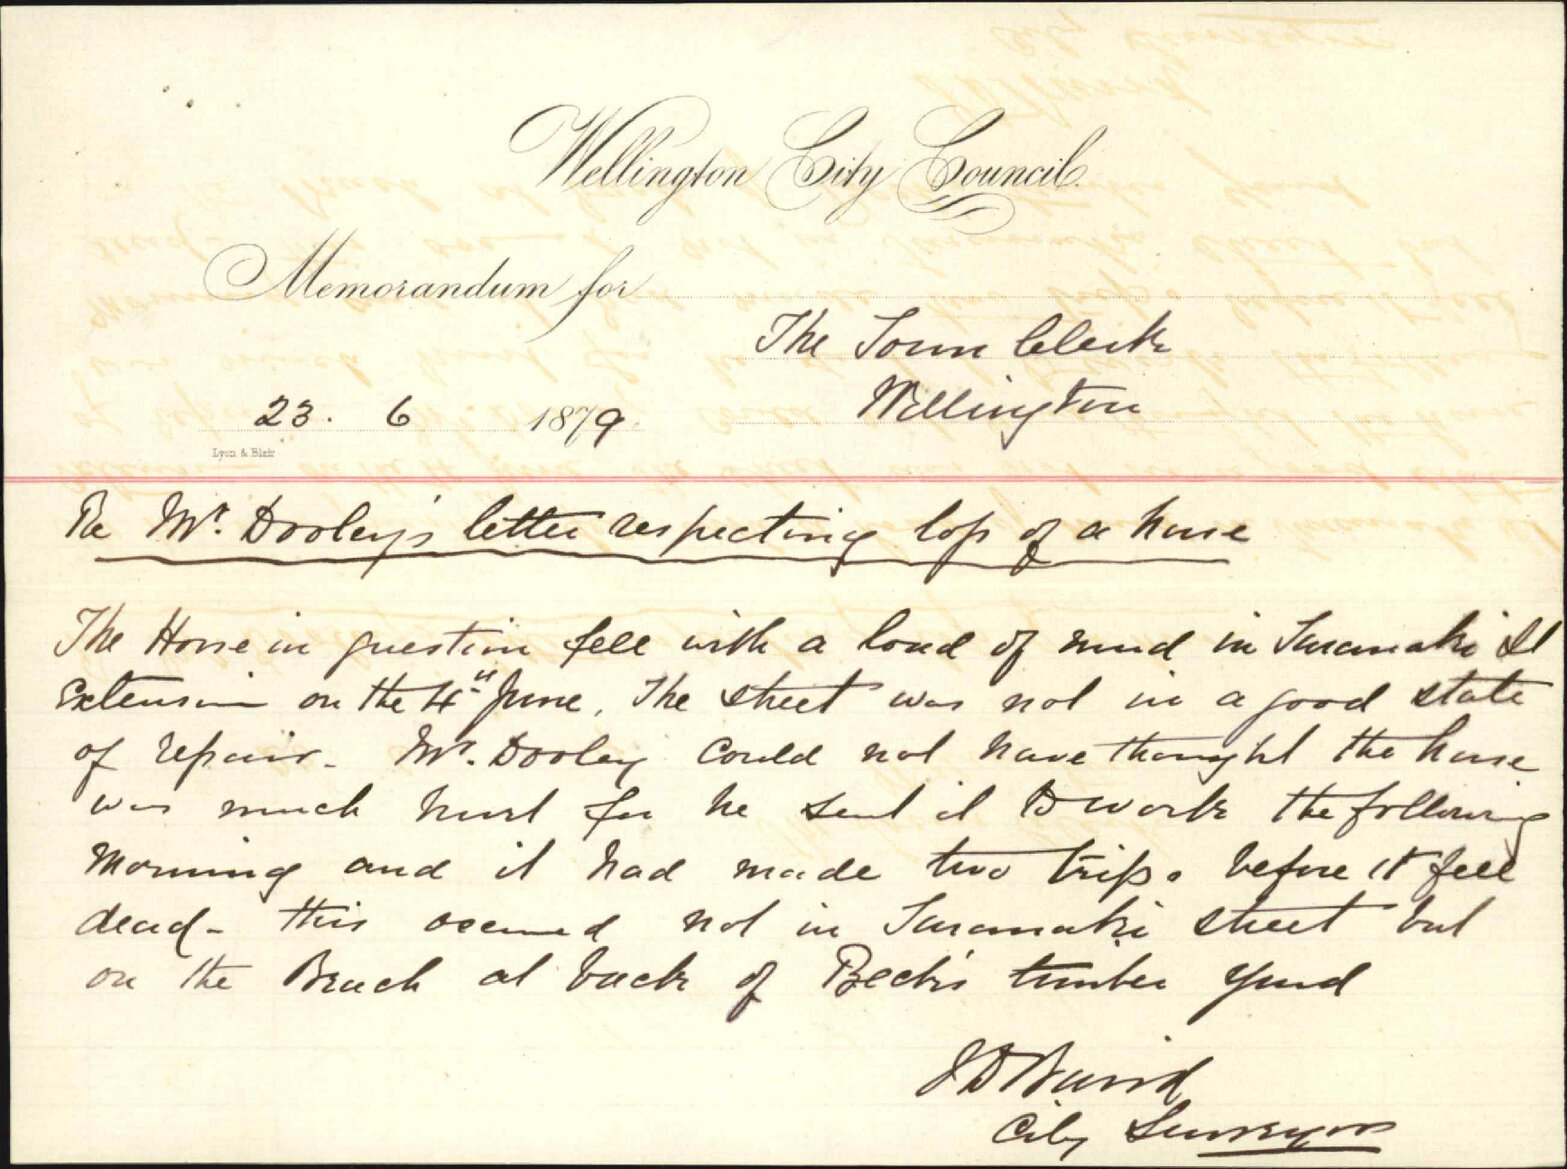 Wellington City Council.
Memorandum for
The Town Clerk
Wellington
23. 6 1879
Lyon & Blair
Re Mr. Dooley's letter respecting loss of a horse
The Horse in question fell with a load of mud in Taranaki St
Extension on the 4th June. The street was not in a good state
of repair. Mr. Dooley could not have thought the horse
was much hurt for he sent it to work the following
morning and it had made two trips before it fell
dead - this occurred not in Taranaki street but
on the Beach at back of Beck's timber yard
J D Baird
City Surveyor